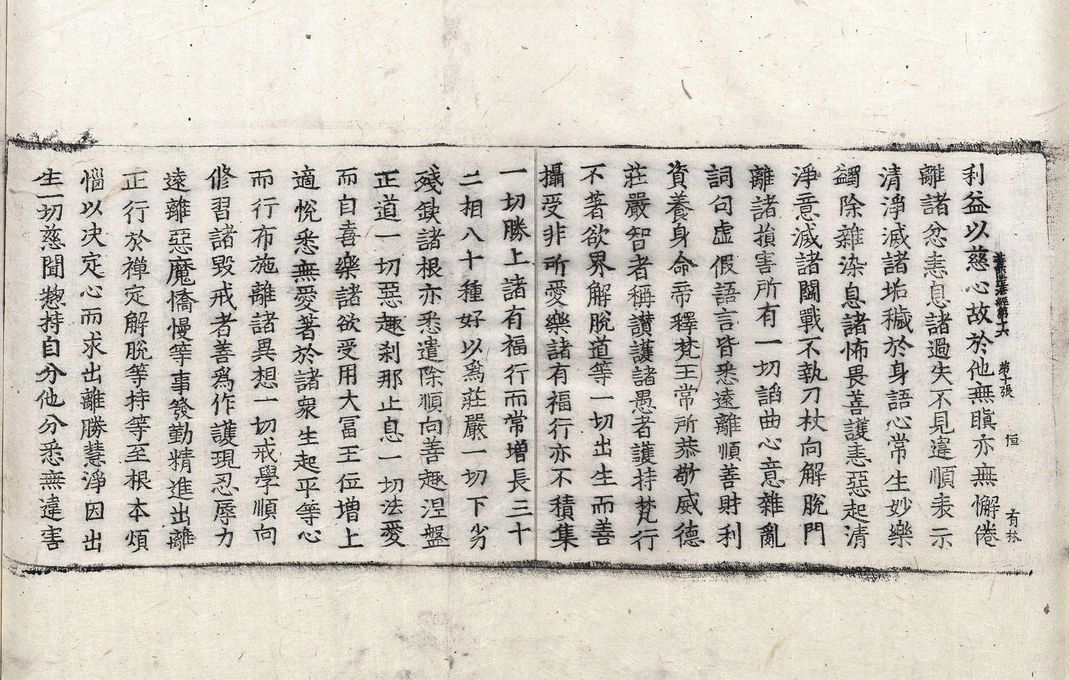 利益以慈心故於他無瞋亦無懈倦
離諸忿恚息諸過失不見違順表示
清淨滅諸垢穢於身語心常生妙樂
蠲除雜染息諸怖畏善護恚惡起清
淨意滅諸鬪戰不執刀杖向解脫門
離諸損害所有一切諂曲心意雜亂
詞句虛假語言皆悉遠離順善財利
資養身命帝釋梵王常所恭敬威德
莊嚴智者稱讚護諸愚者護持梵行
不著欲界解脫道等一切出生而善
攝受非所愛樂諸有福行亦不積集
一切勝上諸有福行而常增長三十
二相八十種好以爲莊嚴一切下劣
殘缺諸根亦悉遣除順向善趣涅盤
正道一切惡趣刹那止息一切法愛
而自喜樂諸欲受用大富王位增上
適悅悉無愛著於諸衆生起平等心
而行布施離諸異想一切戒學順向
修習諸毀戒者善爲作護現忍辱力
遠離惡魔憍慢等事發勤精進出離
正行於禪定解脫等持等至根本煩
惱以決定心而求出離勝慧淨因出
生一切慈聞揔持自分他分悉無違害
第十張
恒